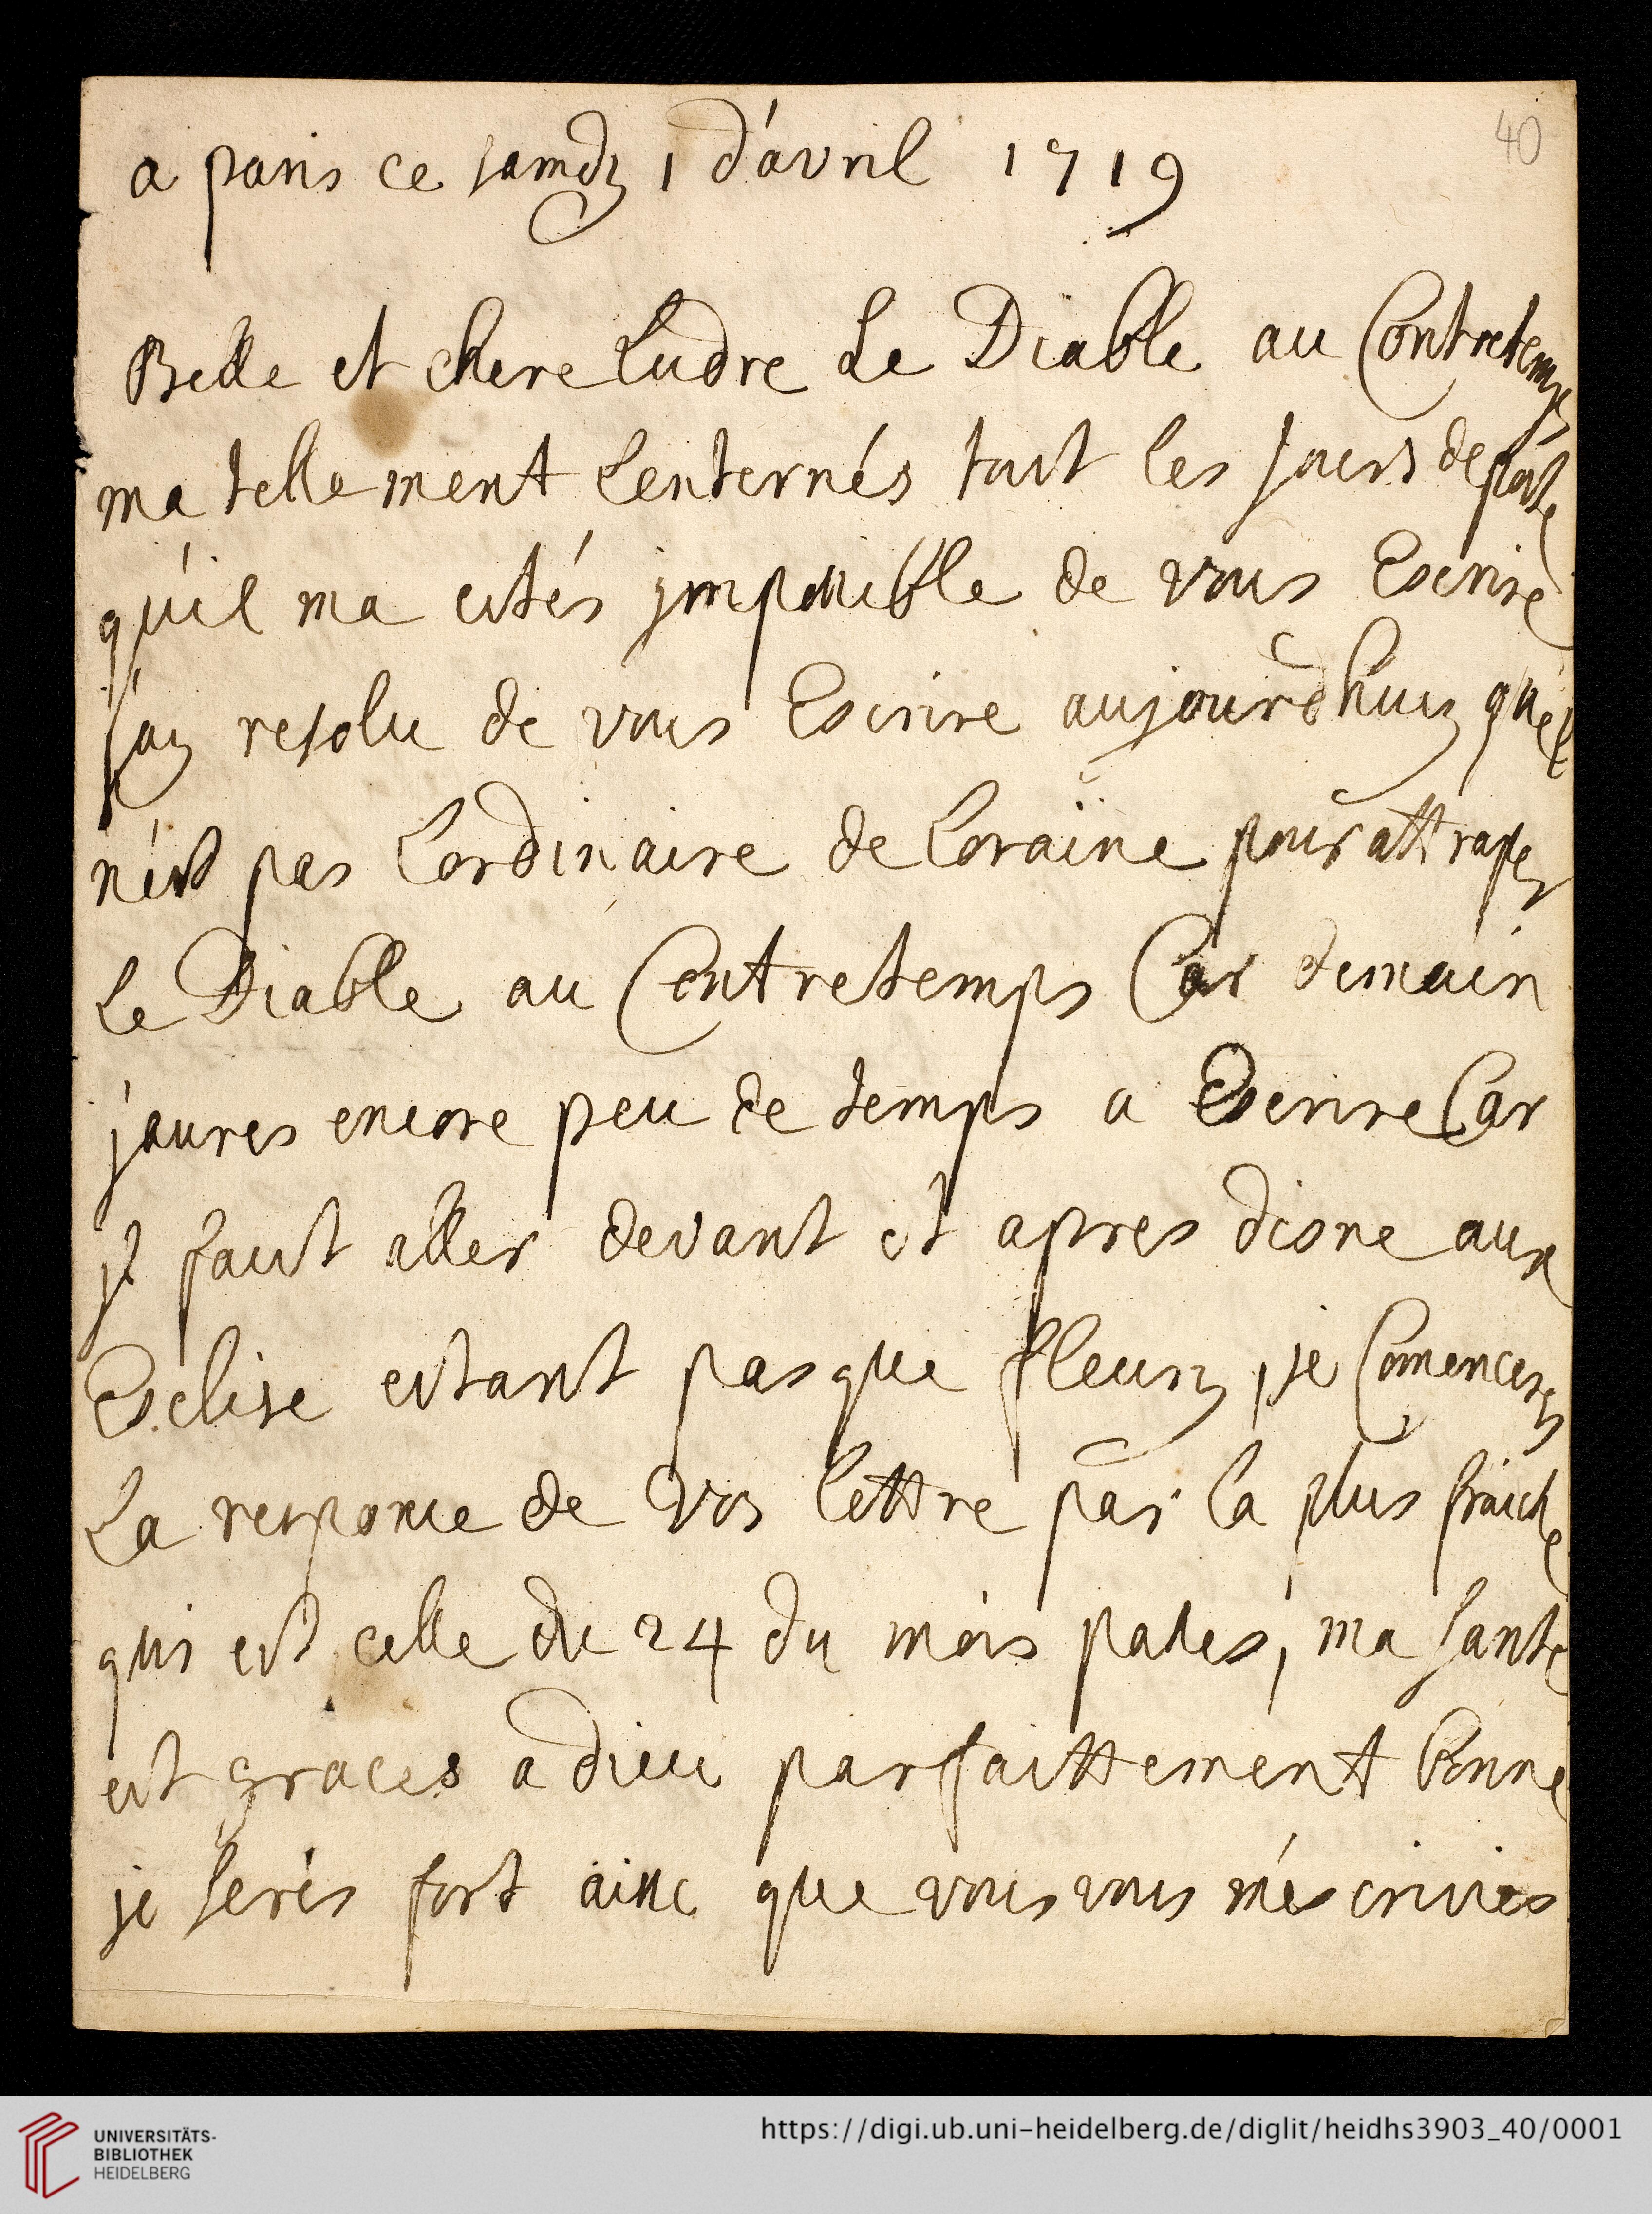 40
a paris ce samdy 1 d'avril 1719
Belle et chere Ludre Le Diable au Contretemps
ma tellement Lenternés tout les jours de poste
qu'il ma estés jmpossible de vous Escrire
j'ay resolu de vous Escrire aujourdhuy qu'il
n'est pas Lordinaire de Loraine pour attraper
Le Diable au Contretemps Car demain
j'aures encore peu de temps a Escrire Car
jl faut aller devant et apres disne aux
Esclise estant pasque fleury, je Comencerey
La responce de vos lettre par la plus fraiche
qui est celle du 24 du mois passes, ma santé
est graces a dieu parfaittement bonne
je serés fort aisse que vous vous m'escrivies
UNIVERSITÄTS-
BIBLIOTHEK
HEIDELBERG
https://digi.ub.uni-heidelberg.de/diglit/heidhs3903_40/0001